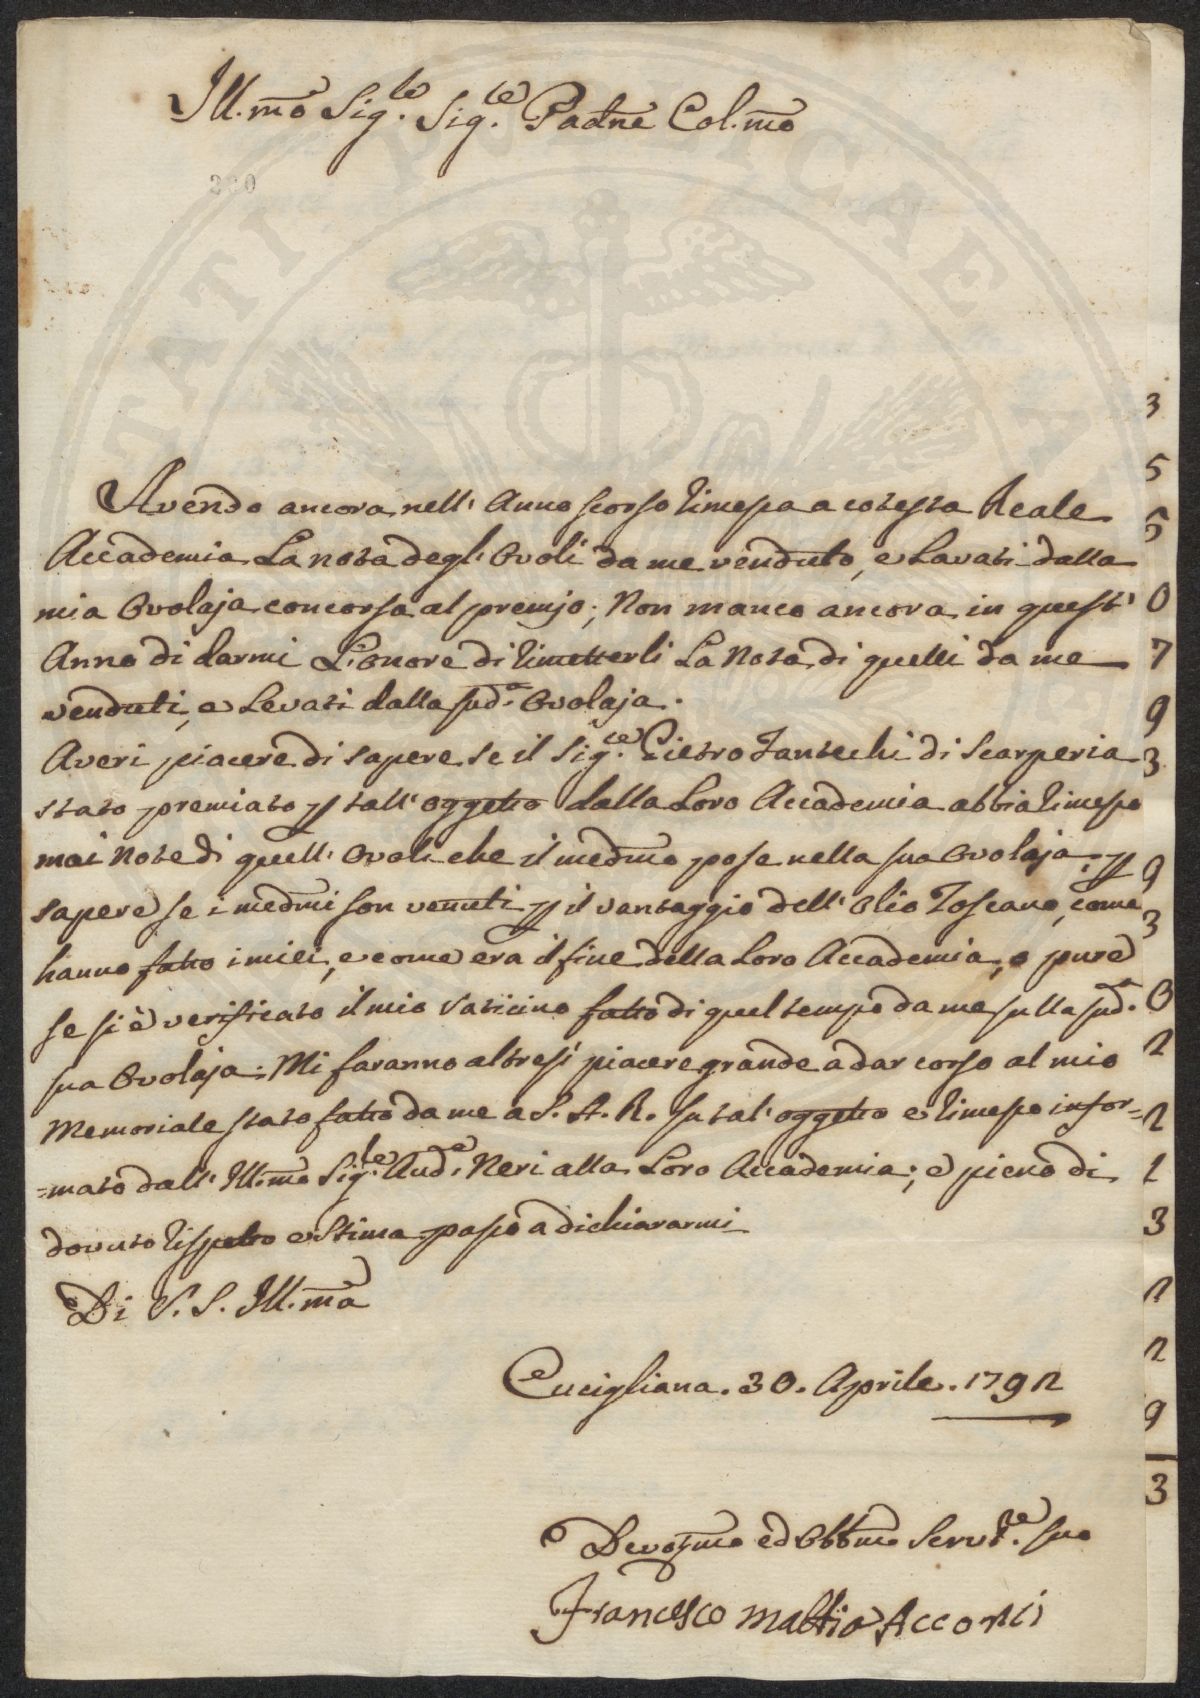 Ill.mo Sig.re Sig.re Padne Col.mo
220
Avendo ancora nell' Anno scorso rimessa a cotesta Reale
Accademia La nota degl' Ovoli da me venduto, e Lavati dalla
mia Ovolaja concorsa al premjo; Non manco ancora in quest'
Anno di darmi L'onore di rimetterli La Nota di quelli da me
venduti, e Levati dalla sud.a Ovolaja.
Averi piacere di sapere se il Sig.re Pietro Fantechi di Scarperia
stato premiato p tall' oggetto dalla Loro Accademia abbia rimesso
mai Note di quell' Ovoli che il medmo pose nella sua Ovolaja, p
sapere se i medmi son venuti p il vantaggio dell' Olio Toscano, come
hanno fatto i miei, e come era il fine della Loro Accademia, o pure
se si è verificato il mio Vaticino fatto di quel tempo da me sulla sud.a
sua Ovolaja: Mi faranno altresì piacere grande a dar corso al mio
Memoriale stato fatto da me a S. A. R. su tal' oggetto e rimesso infor=
=mato dall' Ill.mo Sig.re Aud.e Neri alla Loro Accademia; e pieno di
dovuto rispetto e Stima passo a dichiararmi
Di V. S. Ill.ma
Cucigliana. 30. Aprile. 1792
Devotmo ed Obbmo Servt.re suo
Francesco Mattio Acconci
3
5
5
0
7
9
3
9
3
0
2
2
1
3
2
2
9
3